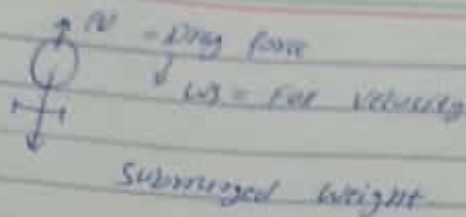 = Drag force
Ws = Fall velocity
Submerged weight